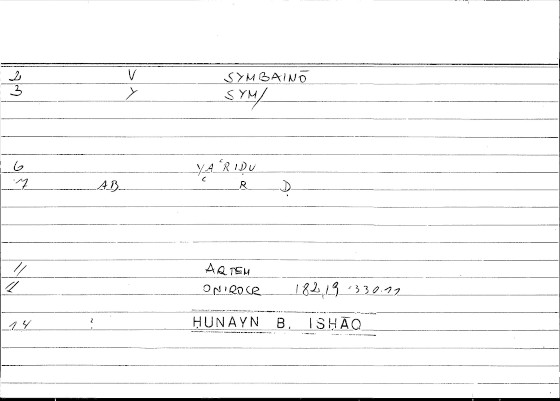 2 V SYMBAINŌ
3 Y SYM/
6 YAʿRIḌU
7 AB ʿ R Ḍ
11 ARTEM
12 ONIROCR 182,19 :330.11
14 ! HUNAYN B. ISHĀQ